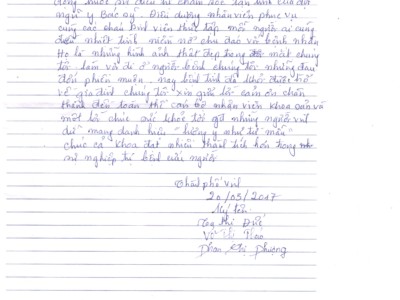 được thuốc men điều trị chăm sóc tận tình của đội
ngũ y Bác sỹ. Điều dưỡng nhân viên phục vụ
cùng các cháu sinh viên thực tập mỗi người ai cũng
nhiệt tình niềm nở chu đáo với bệnh nhân
Họ là những hình ảnh thật đẹp trong mắt chúng
tôi làm vơi đi ở người bệnh chúng tôi những đau
đớn phiền muộn. nay bệnh tình đã khỏi được trở
về gia đình chúng tôi xin gửi lời cảm ơn chân
thành đến toàn thể cán bộ nhân viên khoa cùng với
một lời chúc sức khỏe tới gửi những người
mang danh hiệu "lương y như từ mẫu"
chúc cả khoa đạt nhiều thành tích hơn trong
sự nghiệp trị bệnh cứu người
20/05/2017
Ký tên
Thị
Vũ Thị
Phương